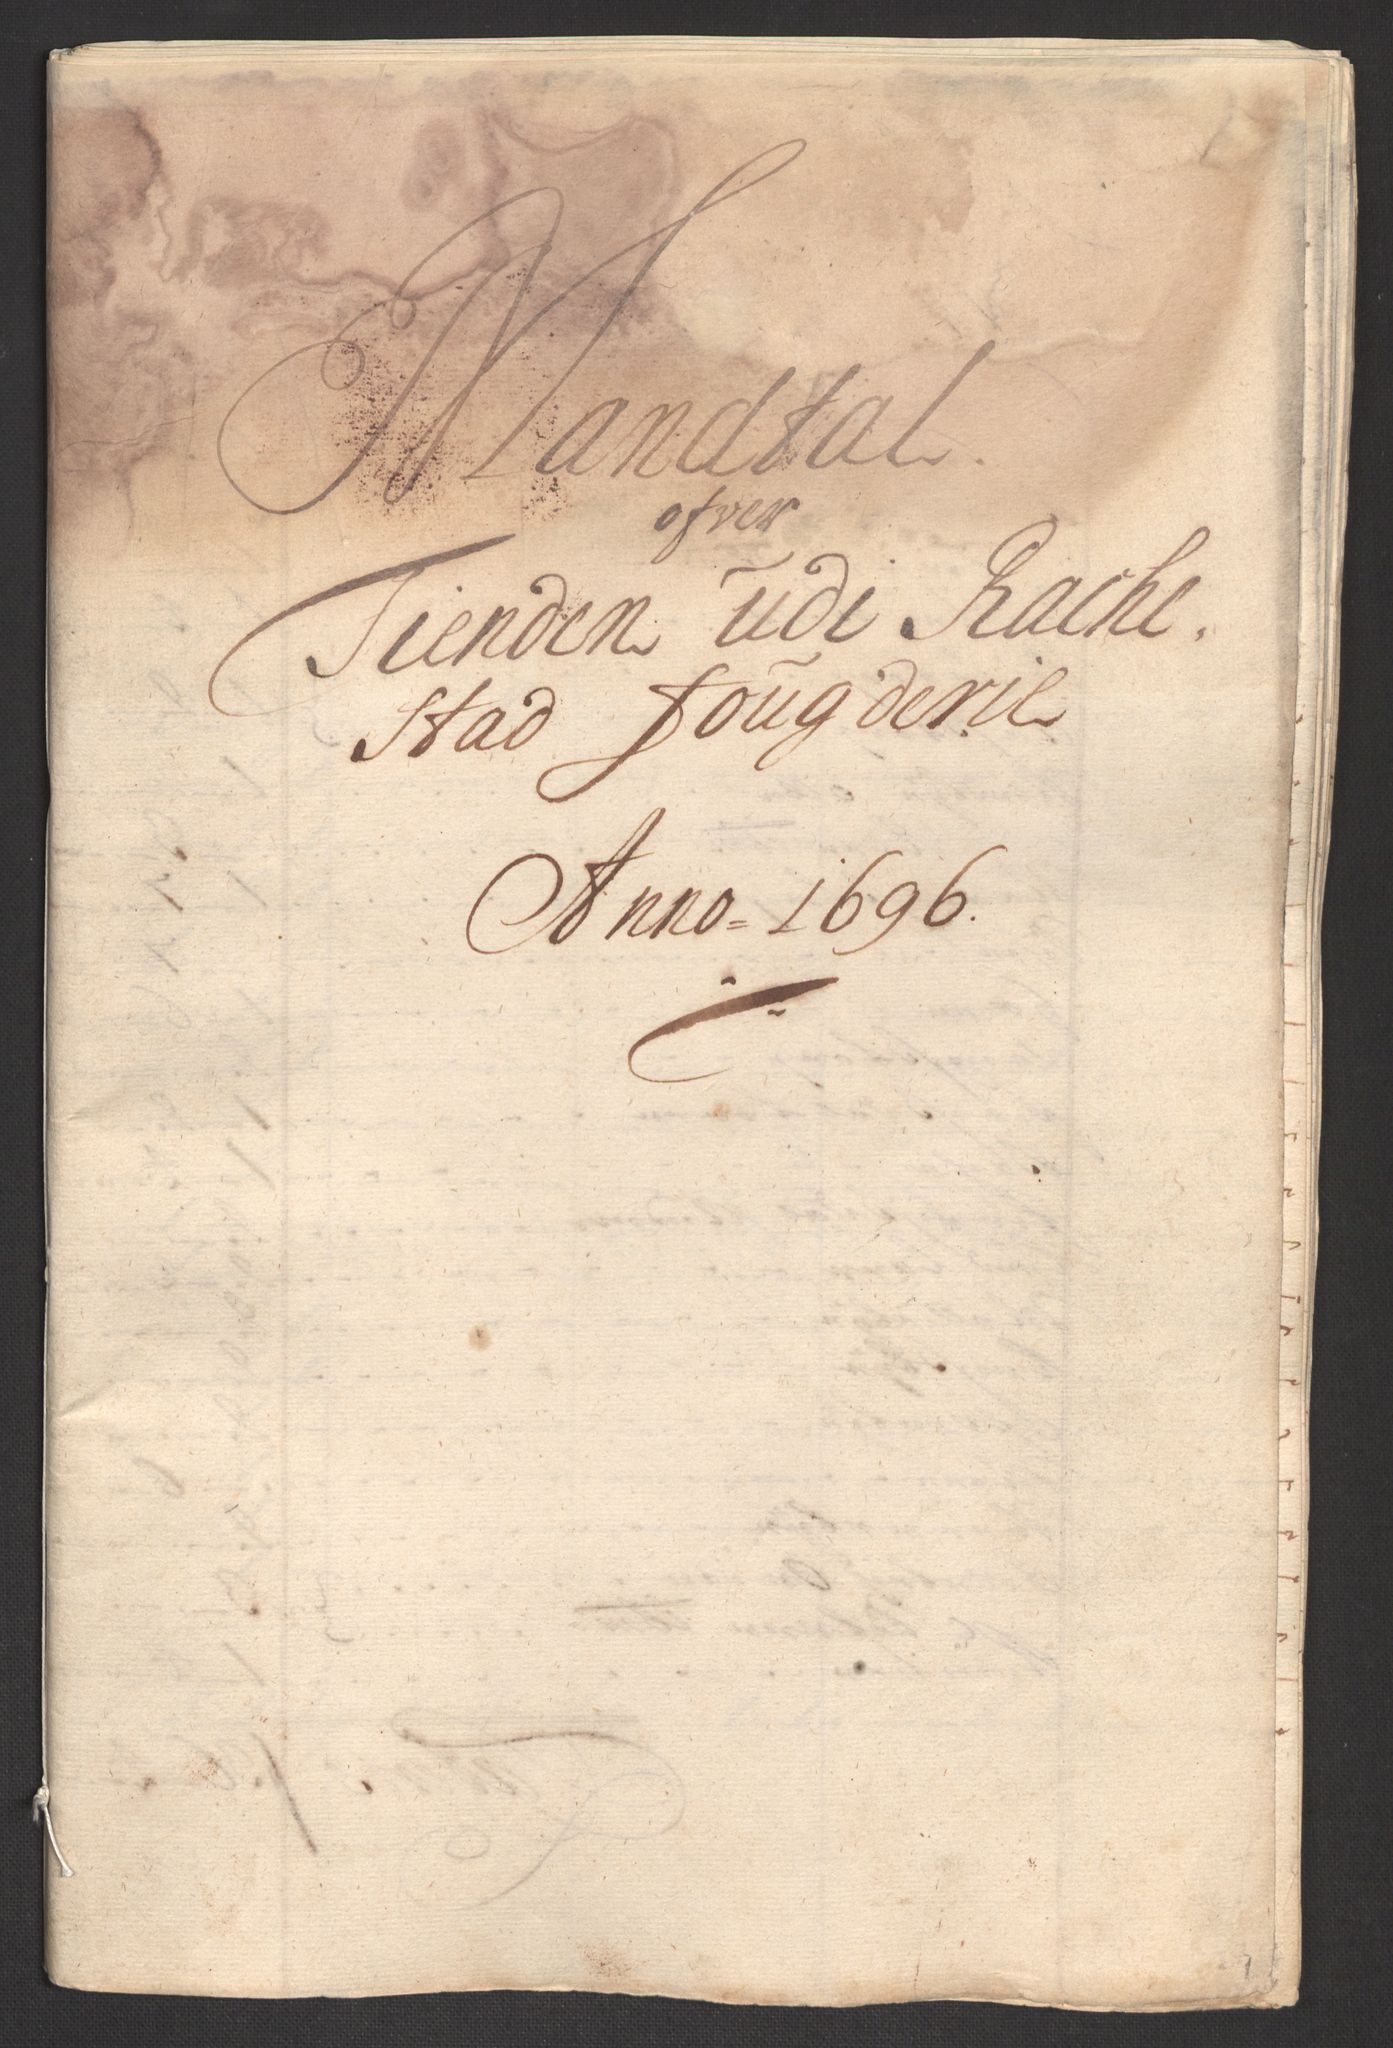 Mandtal.
ofver
Tienden udi Rache.
stad fougderie
Anno = 1696.